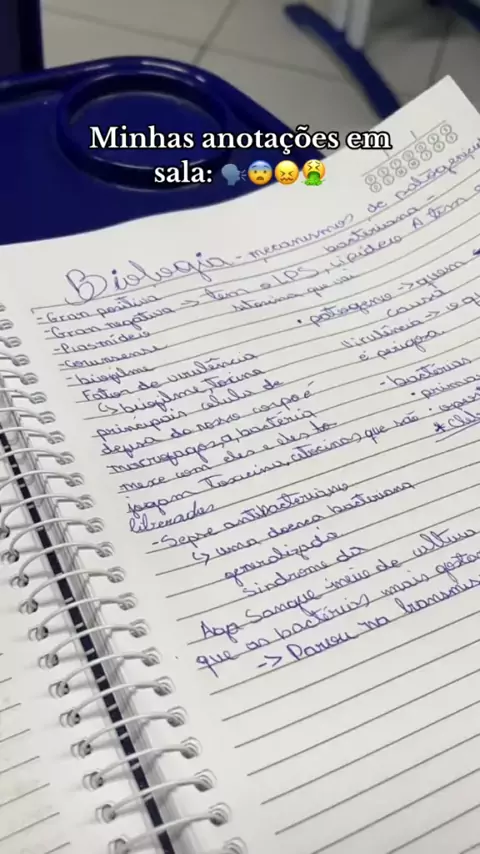 Minhas anotações em
sala: 🗣️😨😖🤮
Biologia - mecanismos de patogenici
bacteriana -
- Gran positiva
- Gran negativa -> tem o LPS, lipídeo A tem
- Plasmídeo
citocina que vai
- Comensense
- biofilme
- Fator de virulência
↳ biofilme, toxina
principais celula de
defesa do nosso corpo é
macrofagos, a bactéria
mexe com eles e eles
jogam citocinas que são
liberadas
• patogeno -> quem
causa
virulência -> o q
é perigosa
- bactérias
• prima
- Sepse antibacteriano
↳ uma doença bacteriana
generalizada
Sindrome da
Aga Sangue meio de cultura
que as bactérias mais gosta
-> Parou na transmis